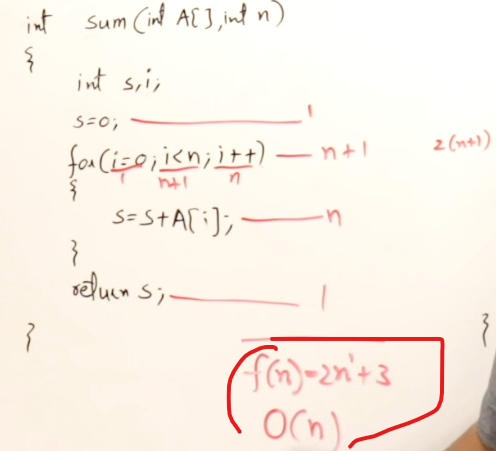 int sum(int A[],int n)
{
int s,i;
s=0; 1
for(i=0;i<n;i++) n+1 2(n+1)
1 n+1 n
{
s=s+A[i]; n
}
return s; 1
} }
f(n)=2n¹+3
O(n)